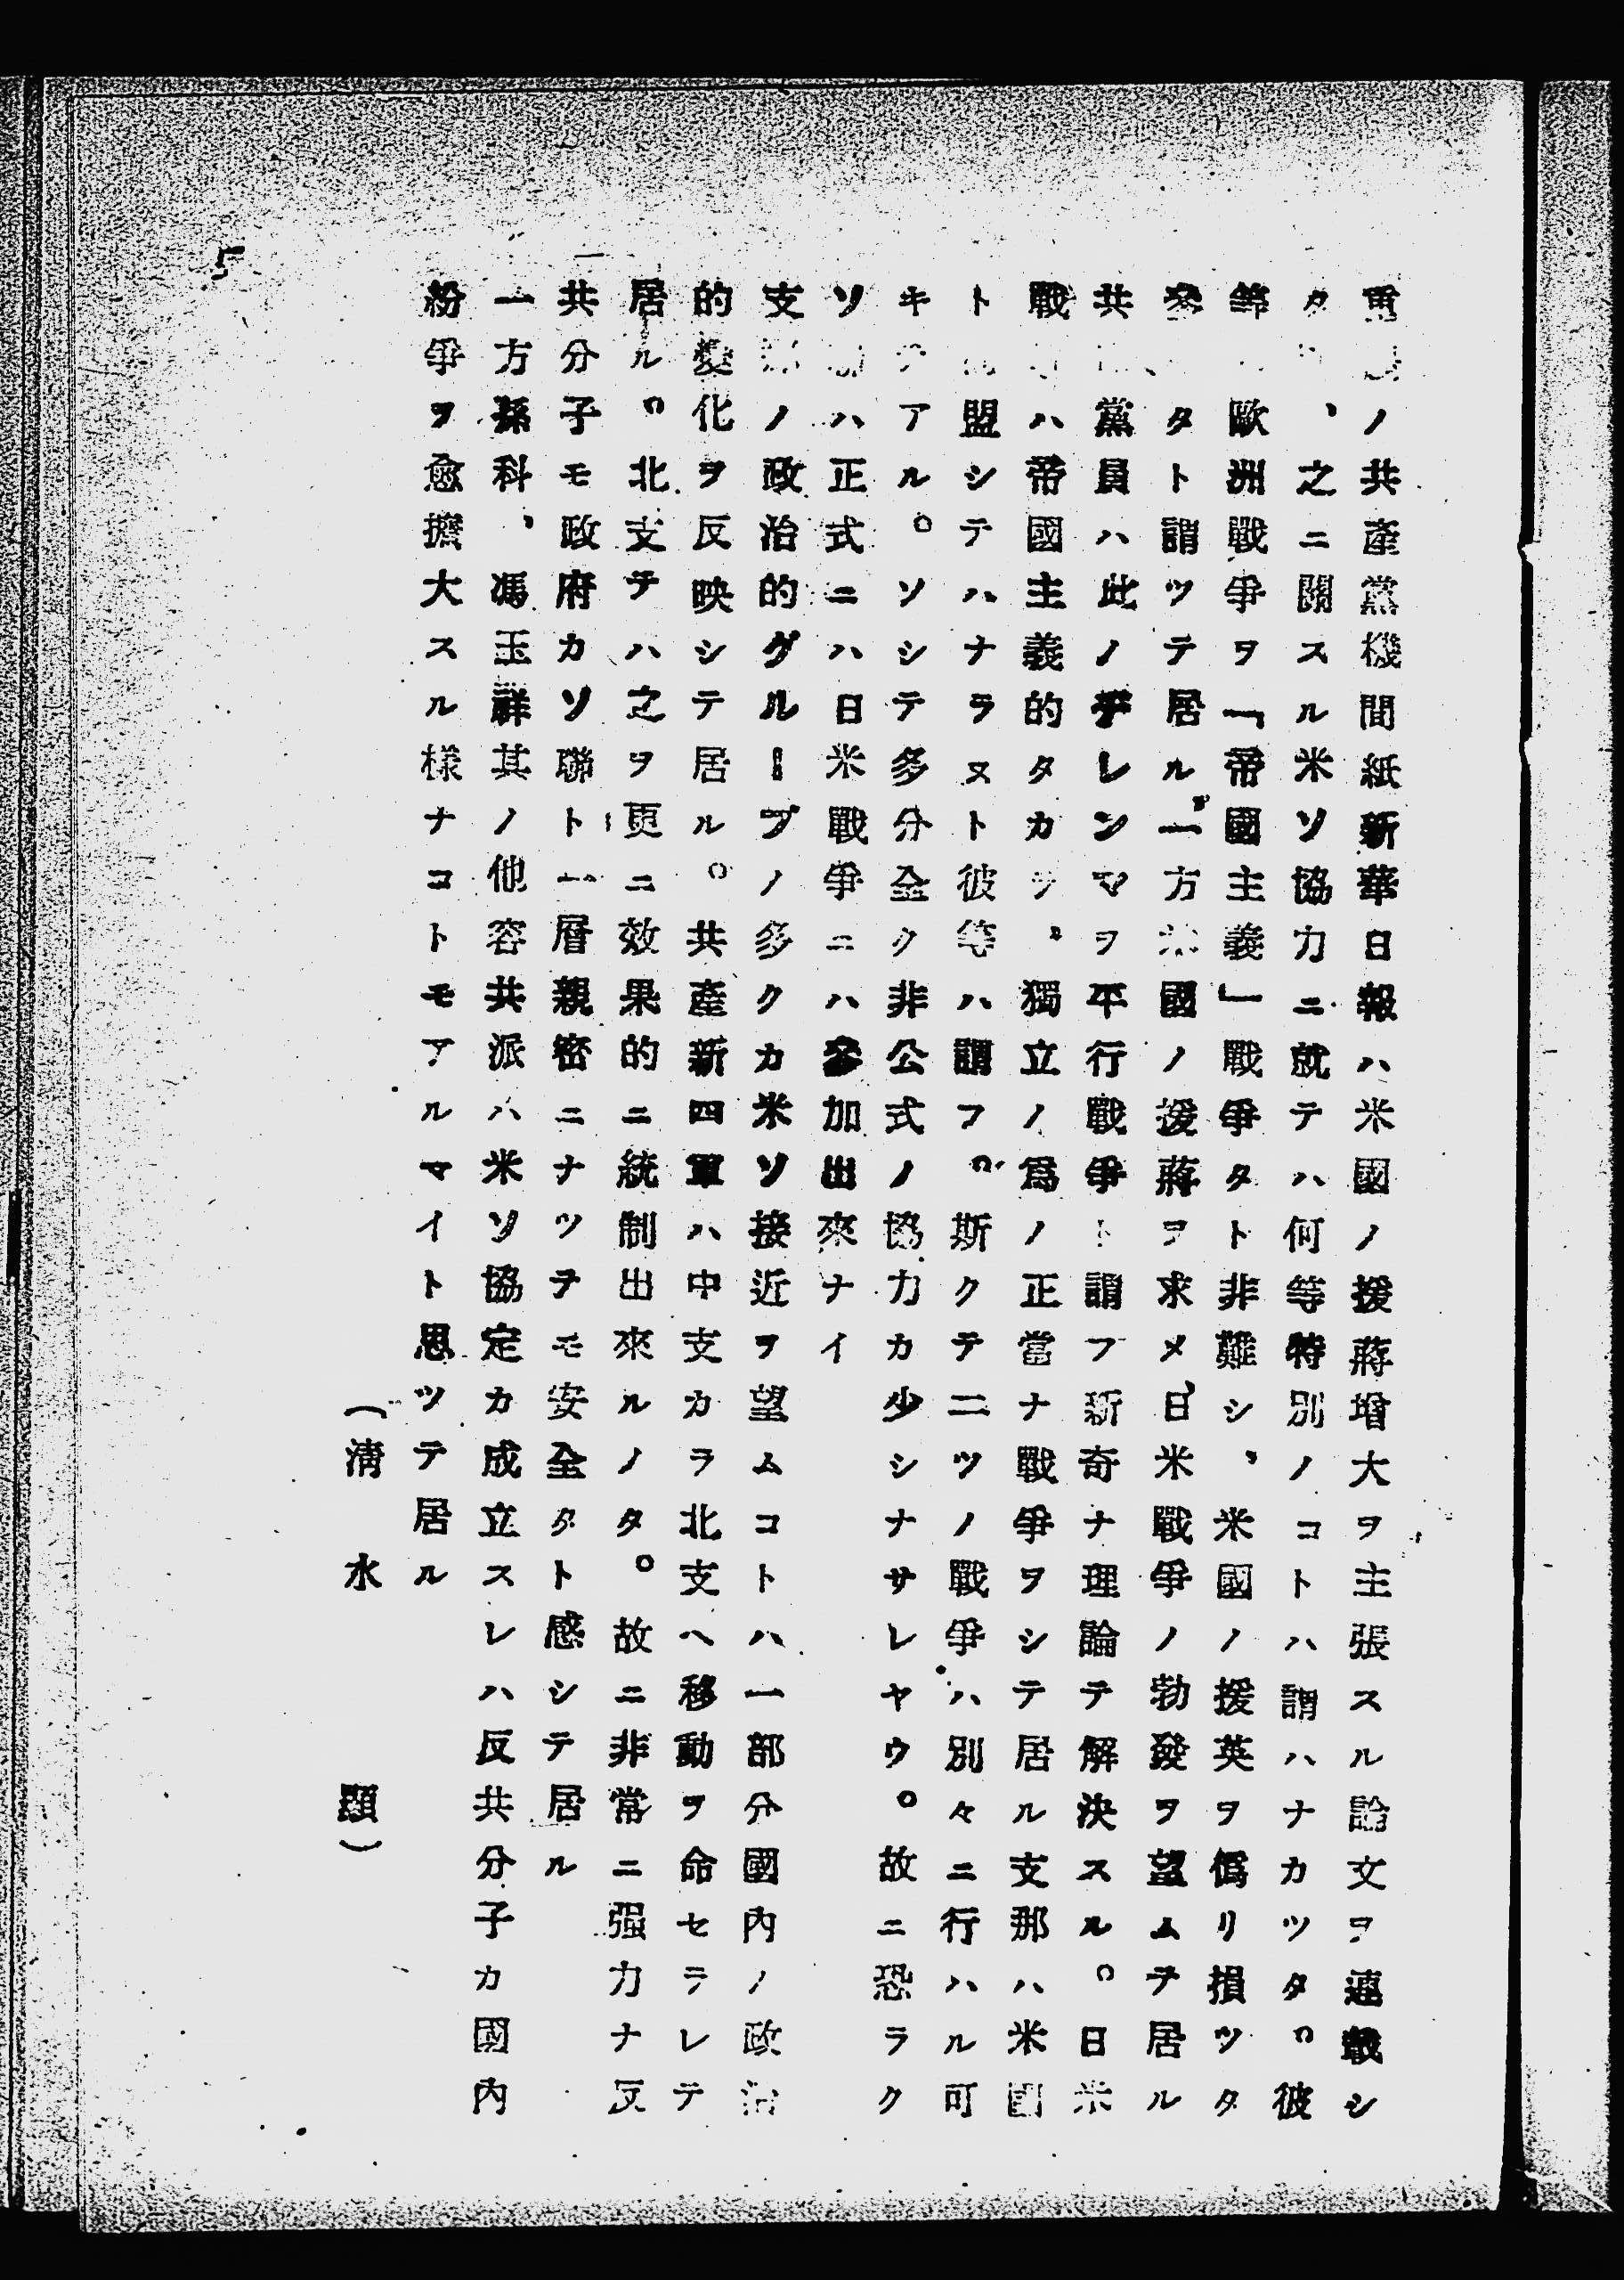 ノ共產黨機關紙新華日報ハ米國ノ援蔣增大ヲ主張スル論文ヲ連載シ
タ、之ニ關スル米ソ協力ニ就テハ何等特別ノコトハ謂ハナカツタ。彼
等 歐洲戰爭ヲ「帝國主義」戰爭タト非難シ、米國ノ援英ヲ僞リ損ツタ
タト謂ツテ居ル 一方米國ノ援蔣ヲ求メ日米戰爭ノ勃發ヲ望ムテ居ル
共 黨員ハ此ノヂレンマヲ平行戰爭ト謂フ新奇ナ理論テ解決スル。日米
戰 ハ帝國主義的タカラ、獨立ノ爲ノ正當ナ戰爭ヲシテ居ル支那ハ米國
ト 盟シテハナラヌト彼等ハ謂フ。斯クテ二ツノ戰爭ハ別々ニ行ハル可
キテアル。ソシテ多分全ク非公式ノ協力カ少シナサレヤウ。故ニ恐ラク
ソ聯ハ正式ニハ日米戰爭ニハ參加出來ナイ
支那ノ政治的グループノ多クカ米ソ接近ヲ望ムコトハ一部分國內ノ政治
的變化ヲ反映シテ居ル。共產新四軍ハ中支カラ北支ヘ移動ヲ命セラレテ
居ル。北支テハ之ヲ更ニ效果的ニ統制出來ルノタ。故ニ非常ニ强力ナ反
共分子モ政府カソ聯ト一層親密ニナツテモ安全タト感シテ居ル
一方孫科、馮玉祥其ノ他容共派ハ米ソ協定カ成立スレハ反共分子カ國內
紛爭ヲ愈擴大スル樣ナコトモアルマイト思ツテ居ル
(淸水 顯)
5